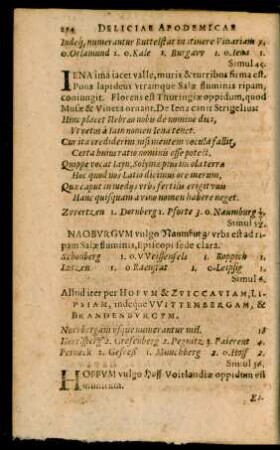 254 DELICIAE APODEMICAE
Indeq́; numerantur Ruttelstat in itinere Vinariam
0. Orlamund 1. 0. Kale 1. Burgaw 1. 0. Iena 1.
Simul 45.
IENA ima iacet valle, muris & turribus firma est.
Pons lapideus vtramque Salæ fluminis ripam,
coniungit. Florens est Thuringiæ oppidum, quod
Musæ & Vineta ornant. De Iena canit Strigelius:
Hinc placet Hebræo nobis de nomine duci,
Vt vetus à Iain nomen Iena tenet.
Cur ita crediderim nisi mentem vocula fallit,
Certa huius ratio nominis esse potest.
Quippe vocat Iayn, Solymæ pius incola terræ
Hoc quod nos Latio dicimus ore merum,
Quæ caput in medijs vrbs fertilis eriget vuis
Hanc quisquam à vino nomen habere neget.
Zevertzen 1. Dornberg 1. Pforte 3. 0. Naumburg
Simul 52.
NAOBVRGVM vulgo Naumburg, vrbs est ad ri-
pam Salæ fluminis, Episcopi sede clara.
Schonberg 1. 0. VVeissenfels 1. Rippich 1.
Lutzen 1. 0 Ranstat 1. 0 Leipzig 1.
Simul
Aliud iter per HOFVM & ZVICCAVIAM, LI-
PSIAM, indeque VVITTENBERGAM, &
BRANDENBVRGVM.
Nurnbergam vsque numerantur mil. 18
2. Grefenberg 2. Pegnitz 3. Paierent 4.
Perneck 2. Gefres 1. Munchberg 2. 0 Hoff 2.
Simul 36.
HOFFVM vulgo Hoff. Voitlandiæ oppidum est